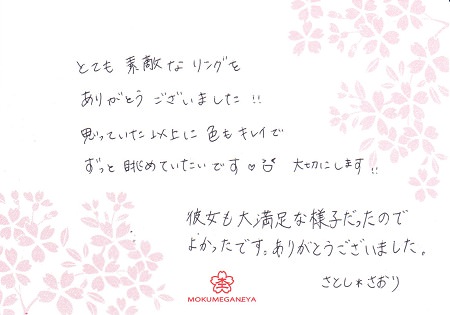 とても 素敵な リングを
ありがとう ございました!!
思っていた以上に 色も キレイで
ずっと 眺めていたいです♡ 大切にします!!
彼女も大満足な様子だったので
よかったです。ありがとうございました。
さとし*さおり
MOKUMEGANEYA